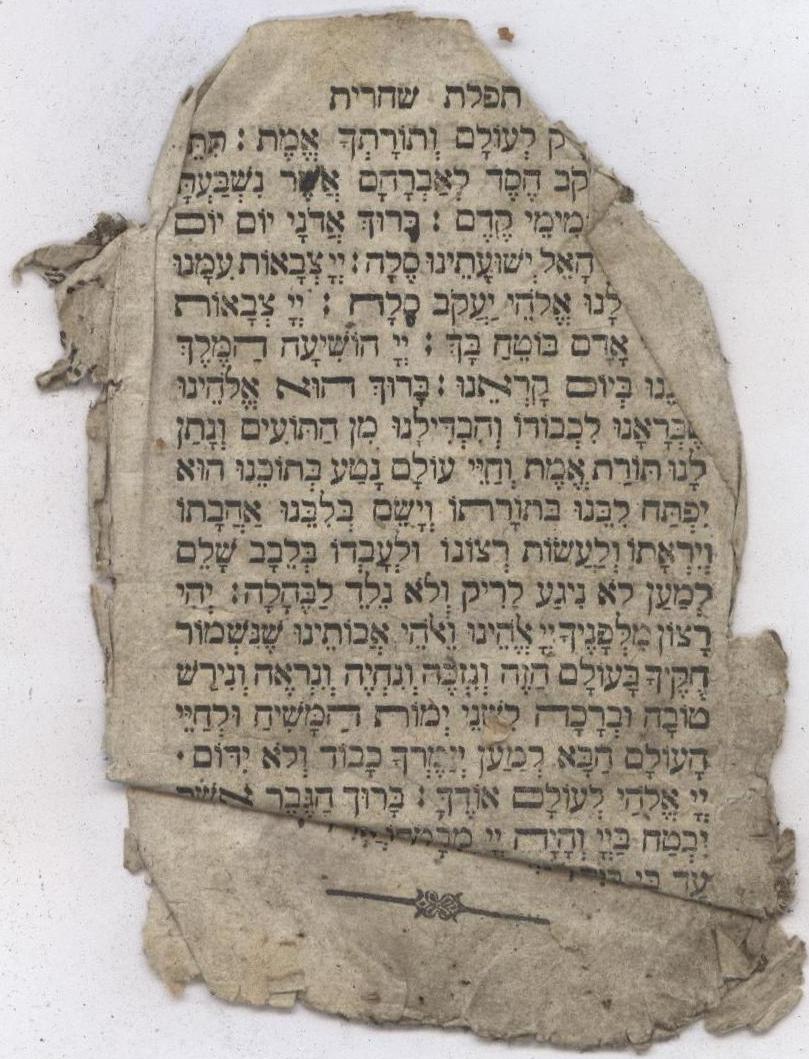 תפלת שחרית
ק לְעוֹלָם וְתוֹרָתְךָ אֱמֶת : תִּתֵּ
קֹב חֶסֶד לְאַבְרָהָם אֲשֶׁר נִשְׁבַּעְתָּ
מִימֵי קֶדֶם : בָּרוּךְ אֲדֹנָי יוֹם יוֹם
הָאֵל יְשׁוּעָתֵינוּ סֶלָה : יְיָ צְבָאוֹת עִמָּנוּ
לָנוּ אֱלֹהֵי יַעֲקֹב סֶלָה : יְיָ צְבָאוֹת
אָדָם בּוֹטֵחַ בָּךְ : יְיָ הוֹשִׁיעָה הַמֶּלֶךְ
נוּ בְיוֹם קָרְאֵנוּ : בָּרוּךְ הוּא אֱלֹהֵינוּ
שֶׁבְּרָאָנוּ לִכְבוֹדוֹ וְהִבְדִּילָנוּ מִן הַתּוֹעִים וְנָתַן
לָנוּ תּוֹרַת אֱמֶת וְחַיֵּי עוֹלָם נָטַע בְּתוֹכֵנוּ הוּא
יִפְתַּח לִבֵּנוּ בְּתוֹרָתוֹ וְיָשֵׂם בְּלִבֵּנוּ אַהֲבָתוֹ
וְיִרְאָתוֹ וְלַעֲשׂוֹת רְצוֹנוֹ וּלְעָבְדוֹ בְּלֵבָב שָׁלֵם
לְמַעַן לֹא נִיגַע לָרִיק וְלֹא נֵלֵד לַבֶּהָלָה : יְהִי
רָצוֹן מִלְּפָנֶיךָ יְיָ אֱלֹהֵינוּ וֵאלֹהֵי אֲבוֹתֵינוּ שֶׁנִּשְׁמוֹר
חֻקֶּיךָ בָּעוֹלָם הַזֶּה וְנִזְכֶּה וְנִחְיֶה וְנִרְאֶה וְנִירַשׁ
טוֹבָה וּבְרָכָה לִשְׁנֵי יְמוֹת הַמָּשִׁיחַ וּלְחַיֵּי
הָעוֹלָם הַבָּא לְמַעַן יְזַמֶּרְךָ כָבוֹד וְלֹא יִדּוֹם .
יְיָ אֱלֹהַי לְעוֹלָם אוֹדֶךָּ : בָּרוּךְ הַגֶּבֶר אֲשֶׁר
יִבְטַח בַּיְיָ וְהָיָה יְיָ מִבְטַחוֹ
עַד כִּי